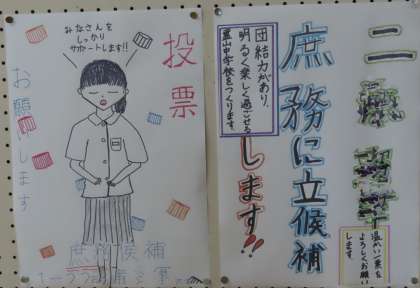 みなさんを
しっかり
サポートします!!
投票
お願いします
庶務候補
庶務に立候補
します!!
団結力があり、
明るく楽しく過ごせる
豊山中学校をつくります。
温かい一票を
よろしくお願い
します。